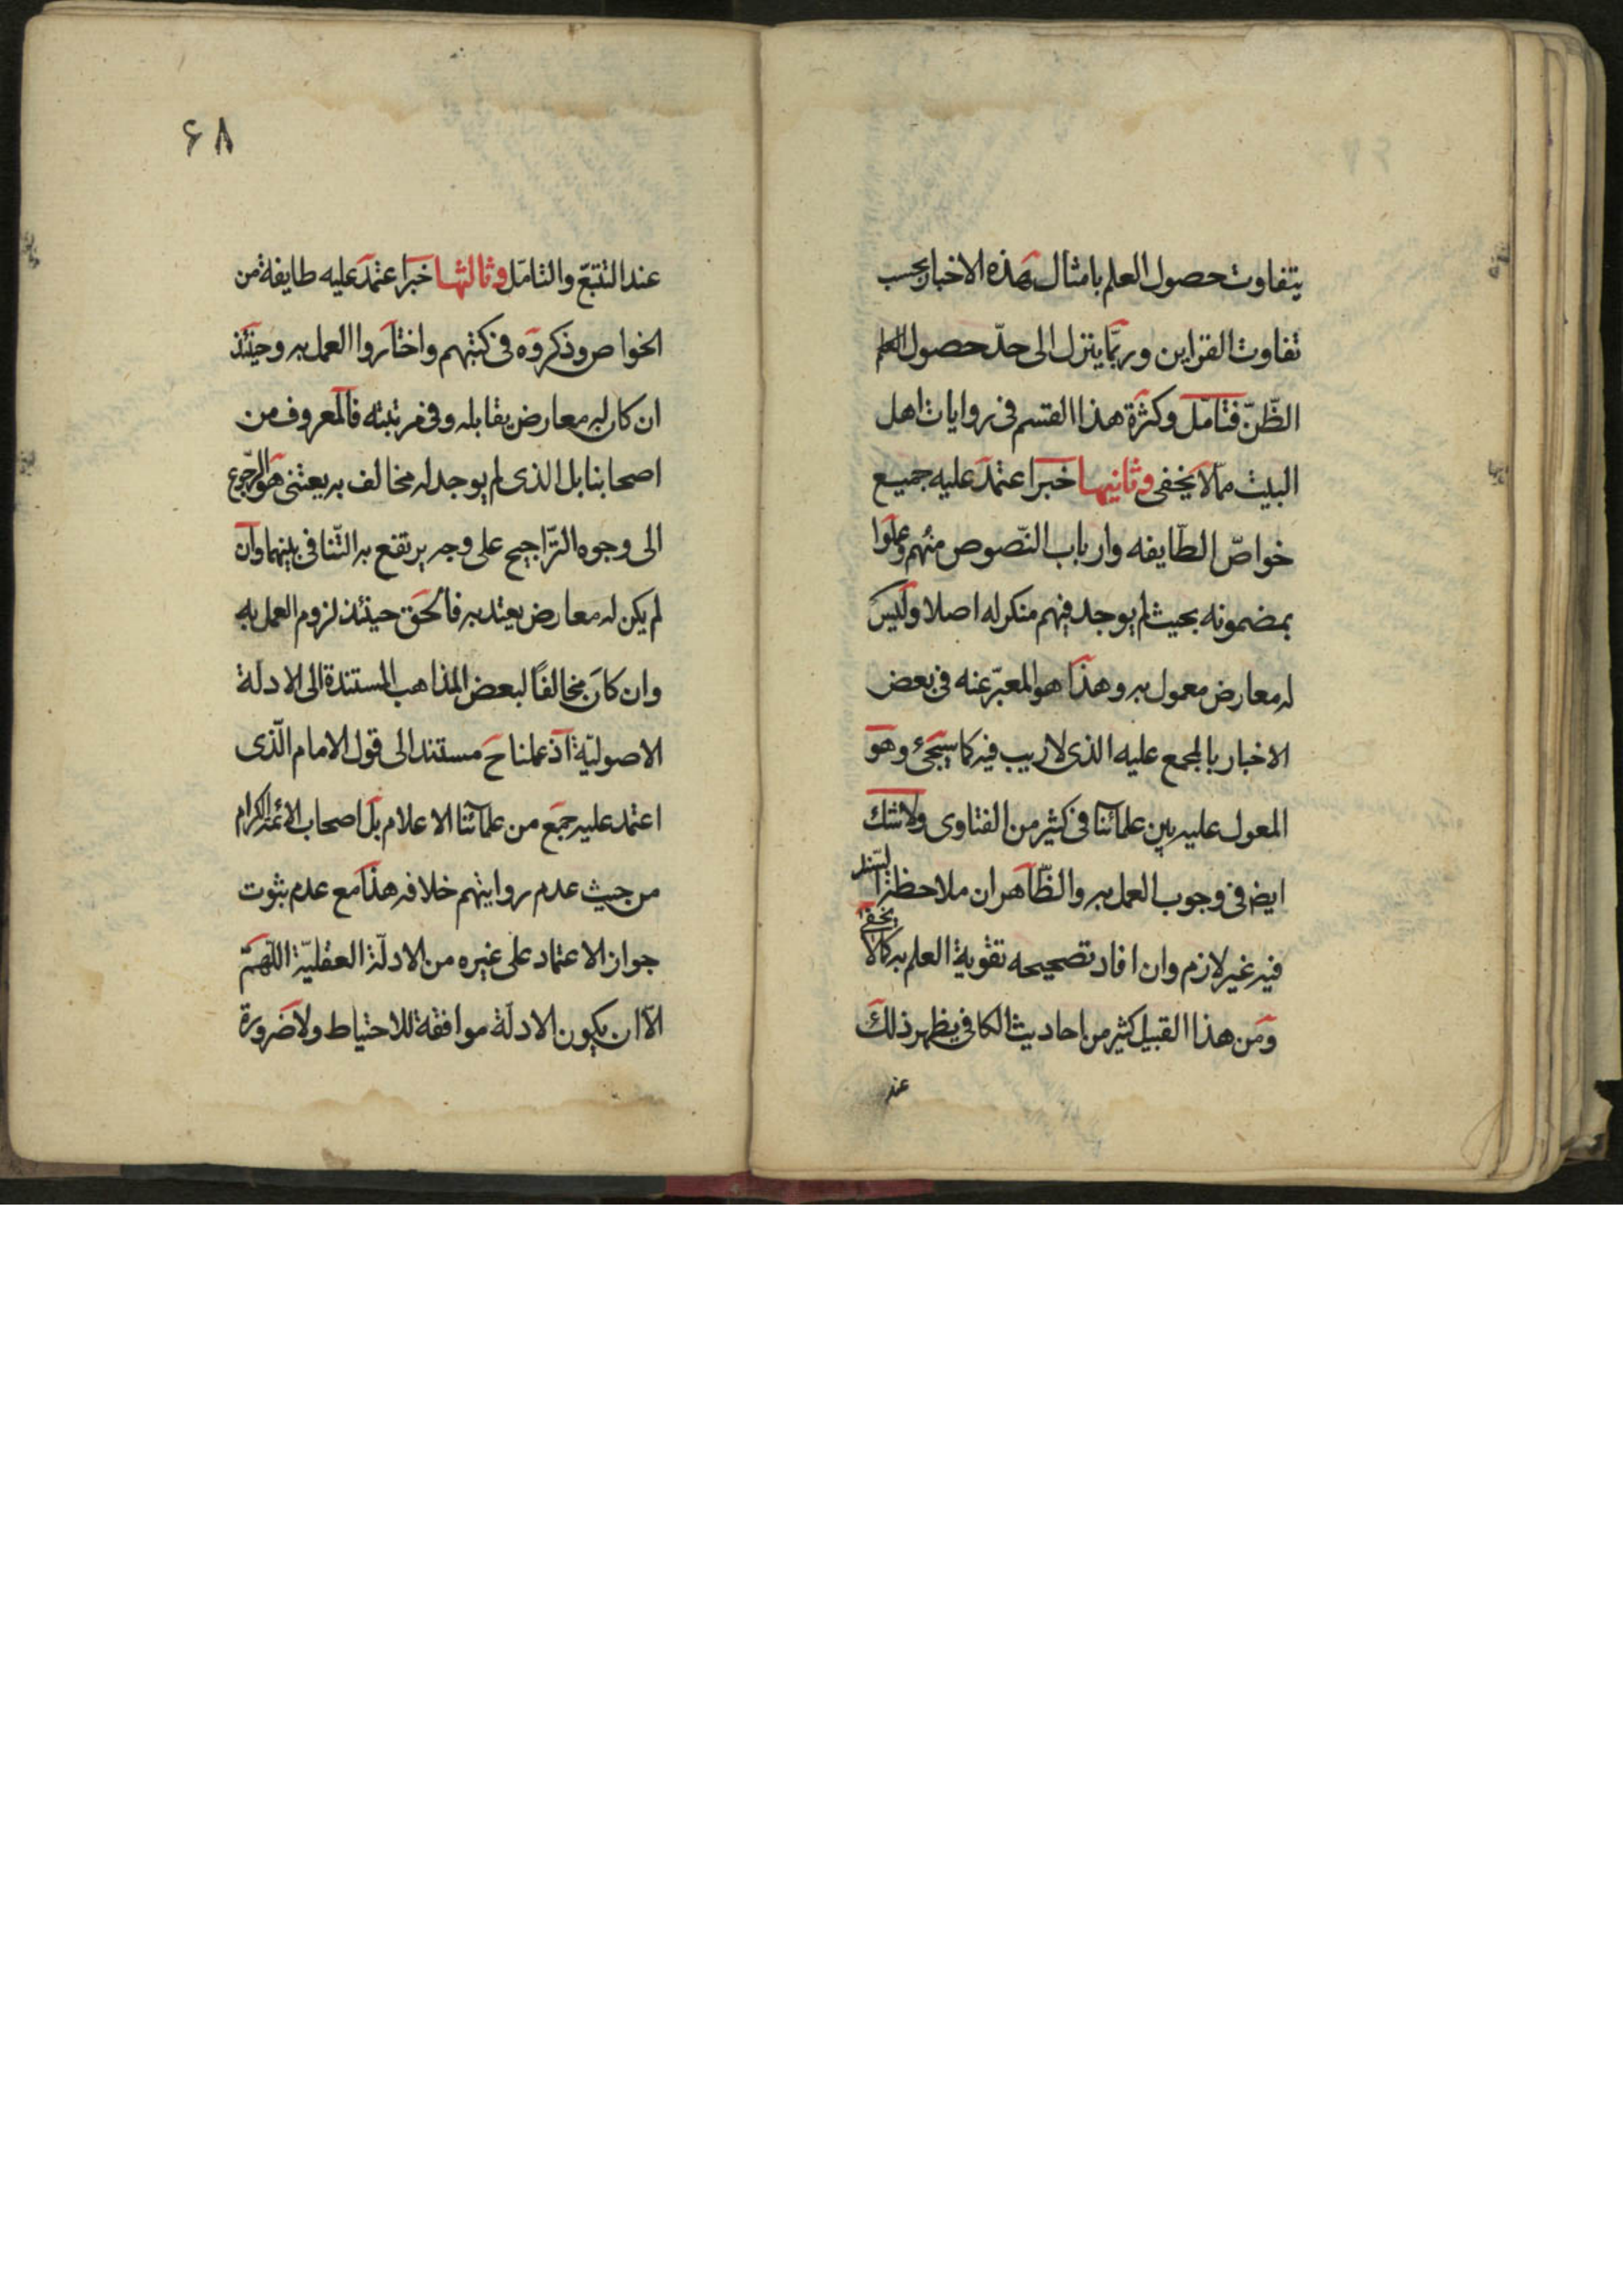 يتفاوت حصول العلم بامثال هذه الاخبار بحسب
تفاوت القراين وربّما يتنزل الى حدّ حصول
الظّنّ فتامّل وكثرة هذا القسم فى روايات اهل
البيت ممّا لا يخفى وثانيها خبر اعتمد عليه جميع
خواصّ الطّايفه وارباب النّصوص منهم وعملوا
بمضمونه بحيث لم يوجد فيهم منكر له اصلا وليس
له معارض معمول به وهذا هو المعبّر عنه فى بعض
الاخبار بالمجمع عليه الذى لا ريب فيه كما سيجئ وهو
المعول عليه بين علمائنا فى كثير من الفتاوى ولا شك
ايض فى وجوب العمل به والظّاهر ان ملاحظة السّند
فيه غير لازم وان افاد تصحيحه تقوية العلم به كما لا يخفى
ومن هذا القبيل كثير من احاديث الكافى يظهر ذلك
عند
۶۸
عند التتبّع والتامّل وثالثها خبر اعتمد عليه طايفة من
الخواص وذكروه فى كتبهم واختاروا العمل به وحينئذ
ان كان له معارض يقابله وفى مرتبته فالمعروف من
اصحابنا بل الذى لم يوجد له مخالف به يعتنى هو الرّجوع
الى وجوه التّراجيح على وجه يرتفع به التّنافى بينهما وان
لم يكن له معارض يعتد به فالحق حينئذ لزوم العمل به
وان كان مخالفًا لبعض المذاهب المستندة الى الادلة
الاصوليّة اذ عملنا ح مستند الى قول الامام الّذى
اعتمد عليه جمع من علمآئنا الاعلام بل اصحاب الائمة الكرام
من حيث عدم روايتهم خلافه هذا مع عدم ثبوت
جواز الاعتماد على غيره من الادلّة العقليّة اللّهمّ
الّا ان يكون الادلّة موافقة للاحتياط ولا ضرورة